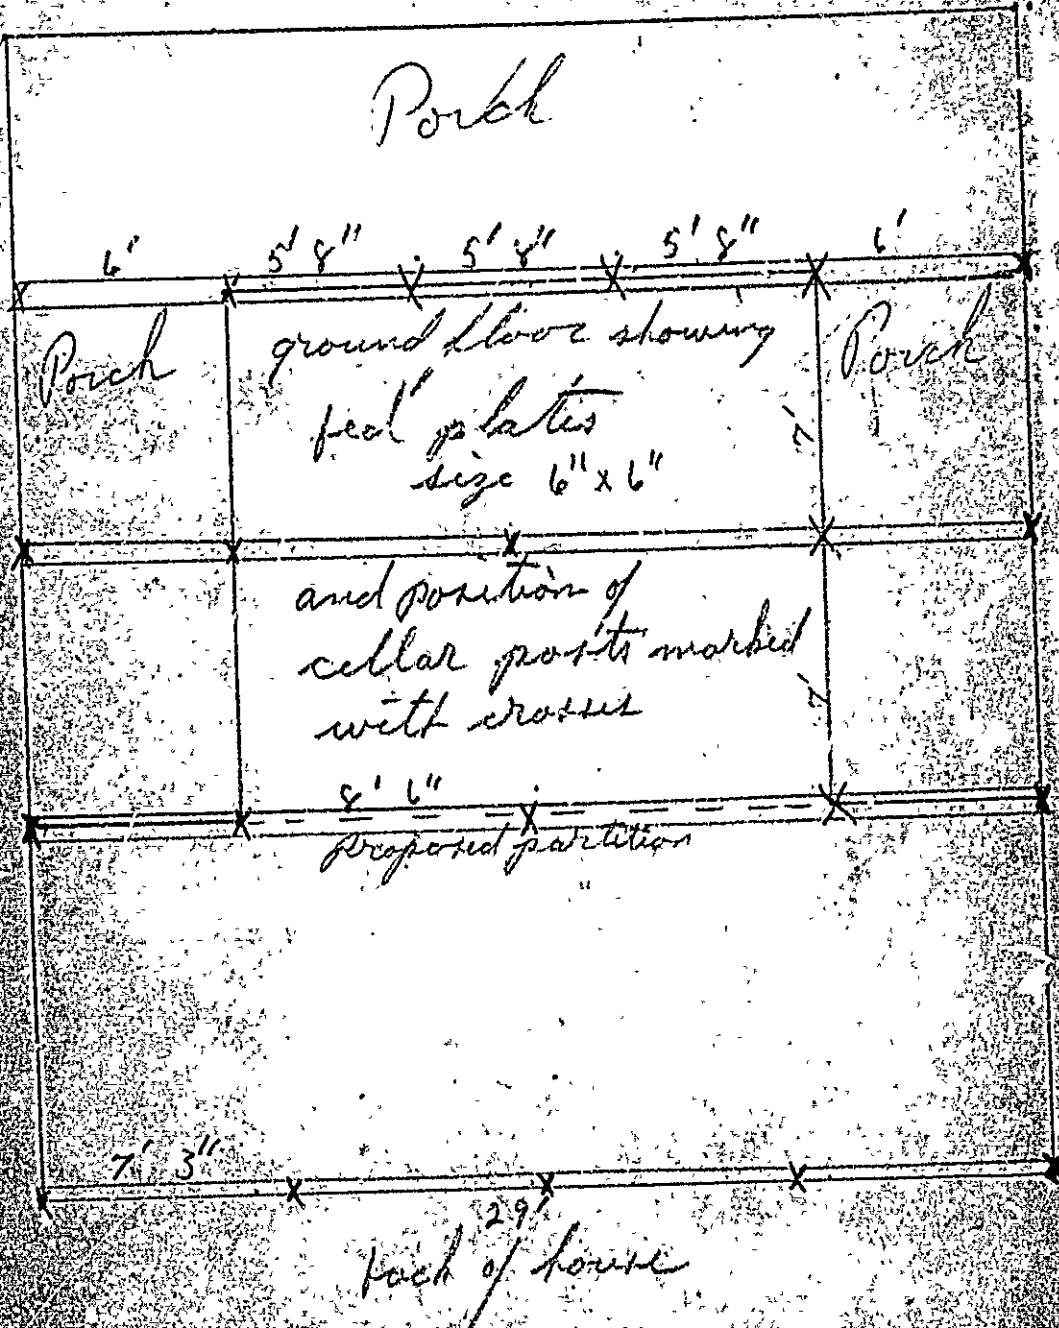 Porch
6' 5' 8" 5' 8" 5' 8" 6'
Porch
ground floor showing
plates
size 6" x 6"
Porch
7'
and position of
cellar posts marked
with crosses
7'
8' 6"
Proposed partition
7' 3"
29'
back of house